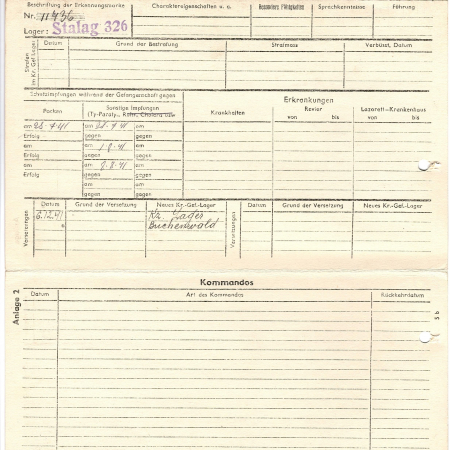 Beschriftung der Erkennungsmarke
Nr. 11436
Lager: Stalag 326
Charaktereigenschaften u. a.
Besondere Fähigkeiten
Sprachkenntnisse
Führung
Strafen im Kr.-Gef.-Lager
Datum
Grund der Bestrafung
Strafmaß
Verbüßt, Datum
Schutzimpfungen während der Gefangenschaft gegen
Pocken
Sonstige Impfungen
(Ty-Paraty., Ruhr, Cholera usw
Erkrankungen
Krankheiten
Revier
von
bis
Lazarett – Krankenhaus
von
bis
am 25.7.41
am 25.7.41
am
Erfolg
gegen
gegen
am
am 1.8.41
am
Erfolg
gegen
gegen
am
am 9.8.41
am
Erfolg
gegen
gegen
am
am
gegen
gegen
Versetzungen
Datum
Grund der Versetzung
Neues Kr.-Gef.-Lager
Kz. Lager
Buchenwald
Versetzungen
Datum
Grund der Versetzung
Neues Kr.-Gef.-Lager
Anlage 2
Kommandos
Datum
Art des Kommandos
Rückkehrdatum
5 b